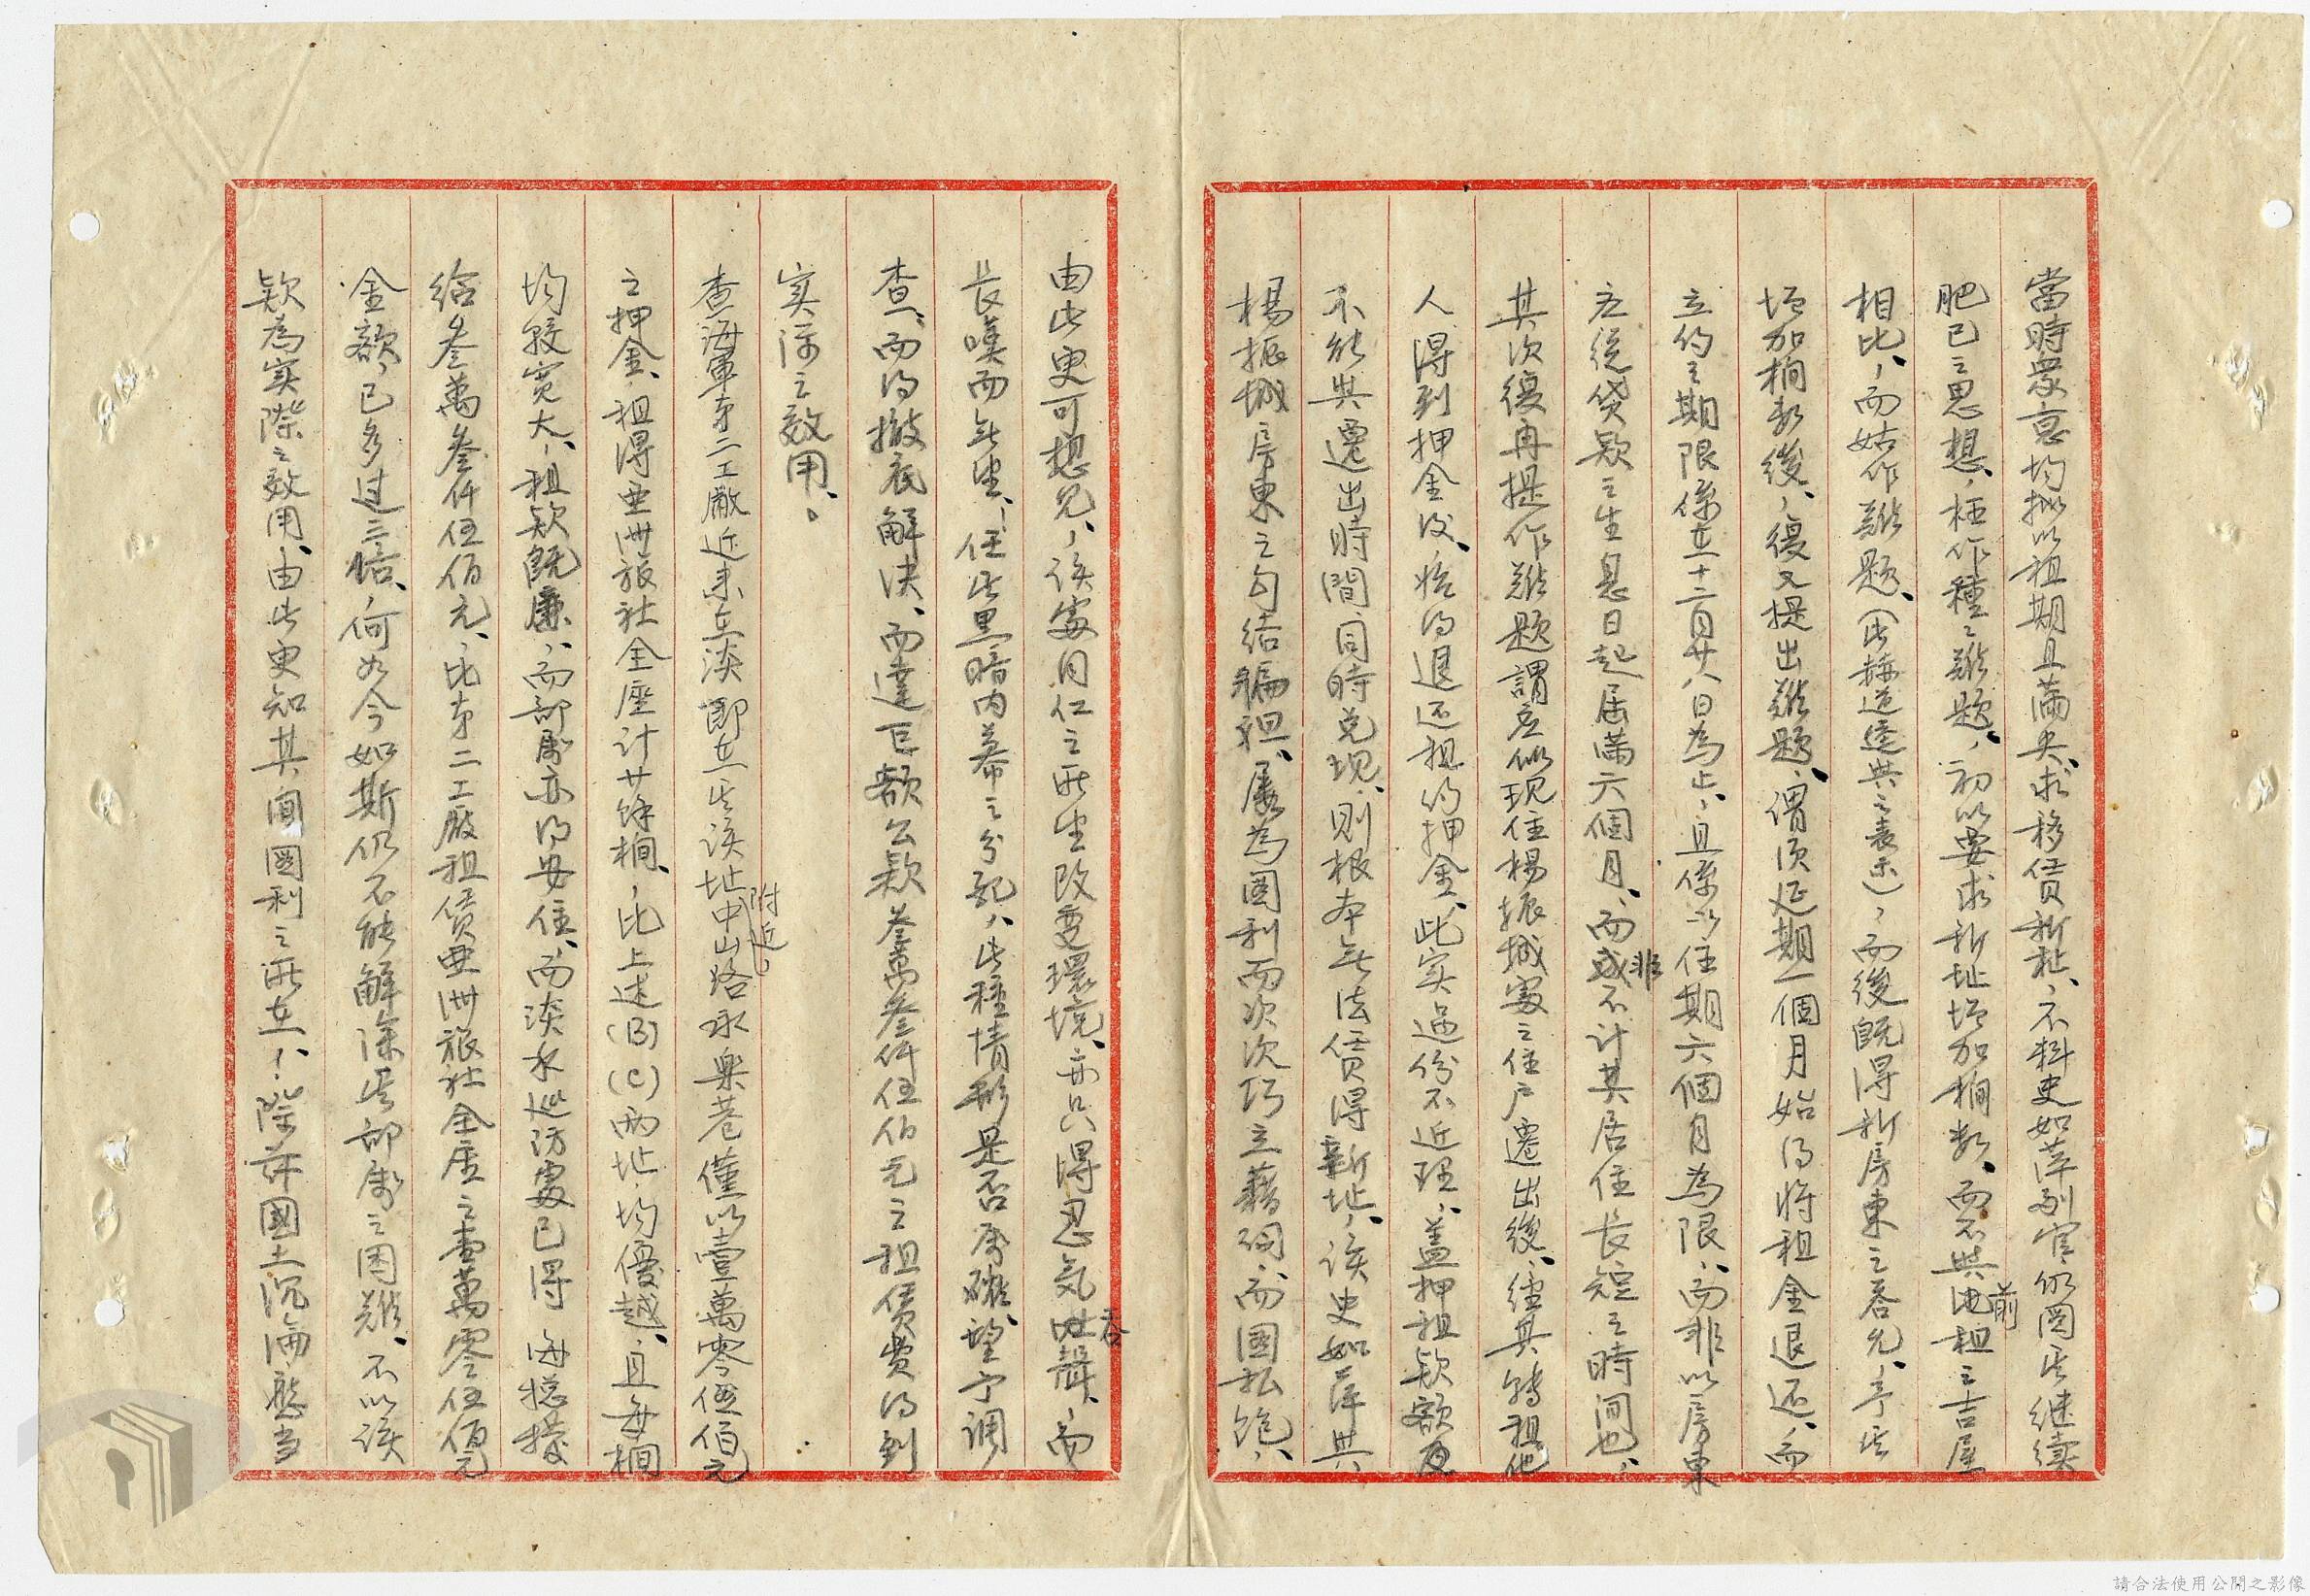 當時眾意均擬以租期且滿矣、求移賃新址、不料史如萍副官仍圖其繼續
肥己之思想、枉作種種難題、初以要求新址增加橺數、而不與前租之吉屋
相比、而姑作難題、(此赫造逵共之表示)、而後既得新房東之吞允、予其
增加橺數後、復又提出難題、謂須延期一個月始得將租金退還、而
立約之期限係在十二月廿八日為止、且係以住期六個月為限、而非以房東
应從貸款之生息日起居滿六個月、而非不计其居住長短之時间也、
其次復再提作難題謂应俟現住楊振城處之住户遷出後、經其轉租他
人得到押金後、始得退还租約押金、此实過份不近理、蓋押租款額
不能與遷出時間同時兌現、則根本無法賃得新址、該史如萍與
楊振城房東之勾结騙租、屢為圖利而次次巧立藉词、而圖私飽、
由此更可想見、該處同仁之所望改变環境、亦只得忍氣吞聲、而
長嘆而無望、任此黑暗內幕之分配、此種情形是否属確、望予調
查、而得撤底解决、而達巨額公款叁萬叁仟伍佰元之租賃費得到
实际之效用、。
查海軍第二工廠近來在淡即在其該址中山路附近永樂巷僅以壹萬零伍佰元
之押金、租得亚洲旅社全座計廿餘橺、比上述(B)(C)兩址均優越、且每橺
均較宽大、租款既廉、而部属亦得安住、而淡水巡防處已得 海總撥
给叁萬叁仟伍佰元、比第二工廠租賃亚洲旅社全座之壹萬零伍佰元
金額、已多过三倍、何如今如斯仍不能解除其部属之困難、不以該
款為实際之效用、由此更知其間圖利之所在、!、際茲國土沉淪應当
請合法使用公開之影像